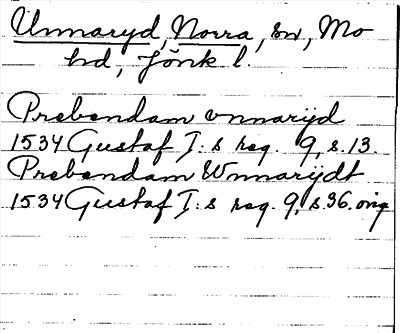 Unnaryd Norra, sn, Mo
hd, Jönk l.
Prebendam vnnarijd
1534 Gustaf I:s reg. 9, s. 13.
Prebendam Wnnarijdt
1534 Gustaf I:s reg. 9, s. 36. orig